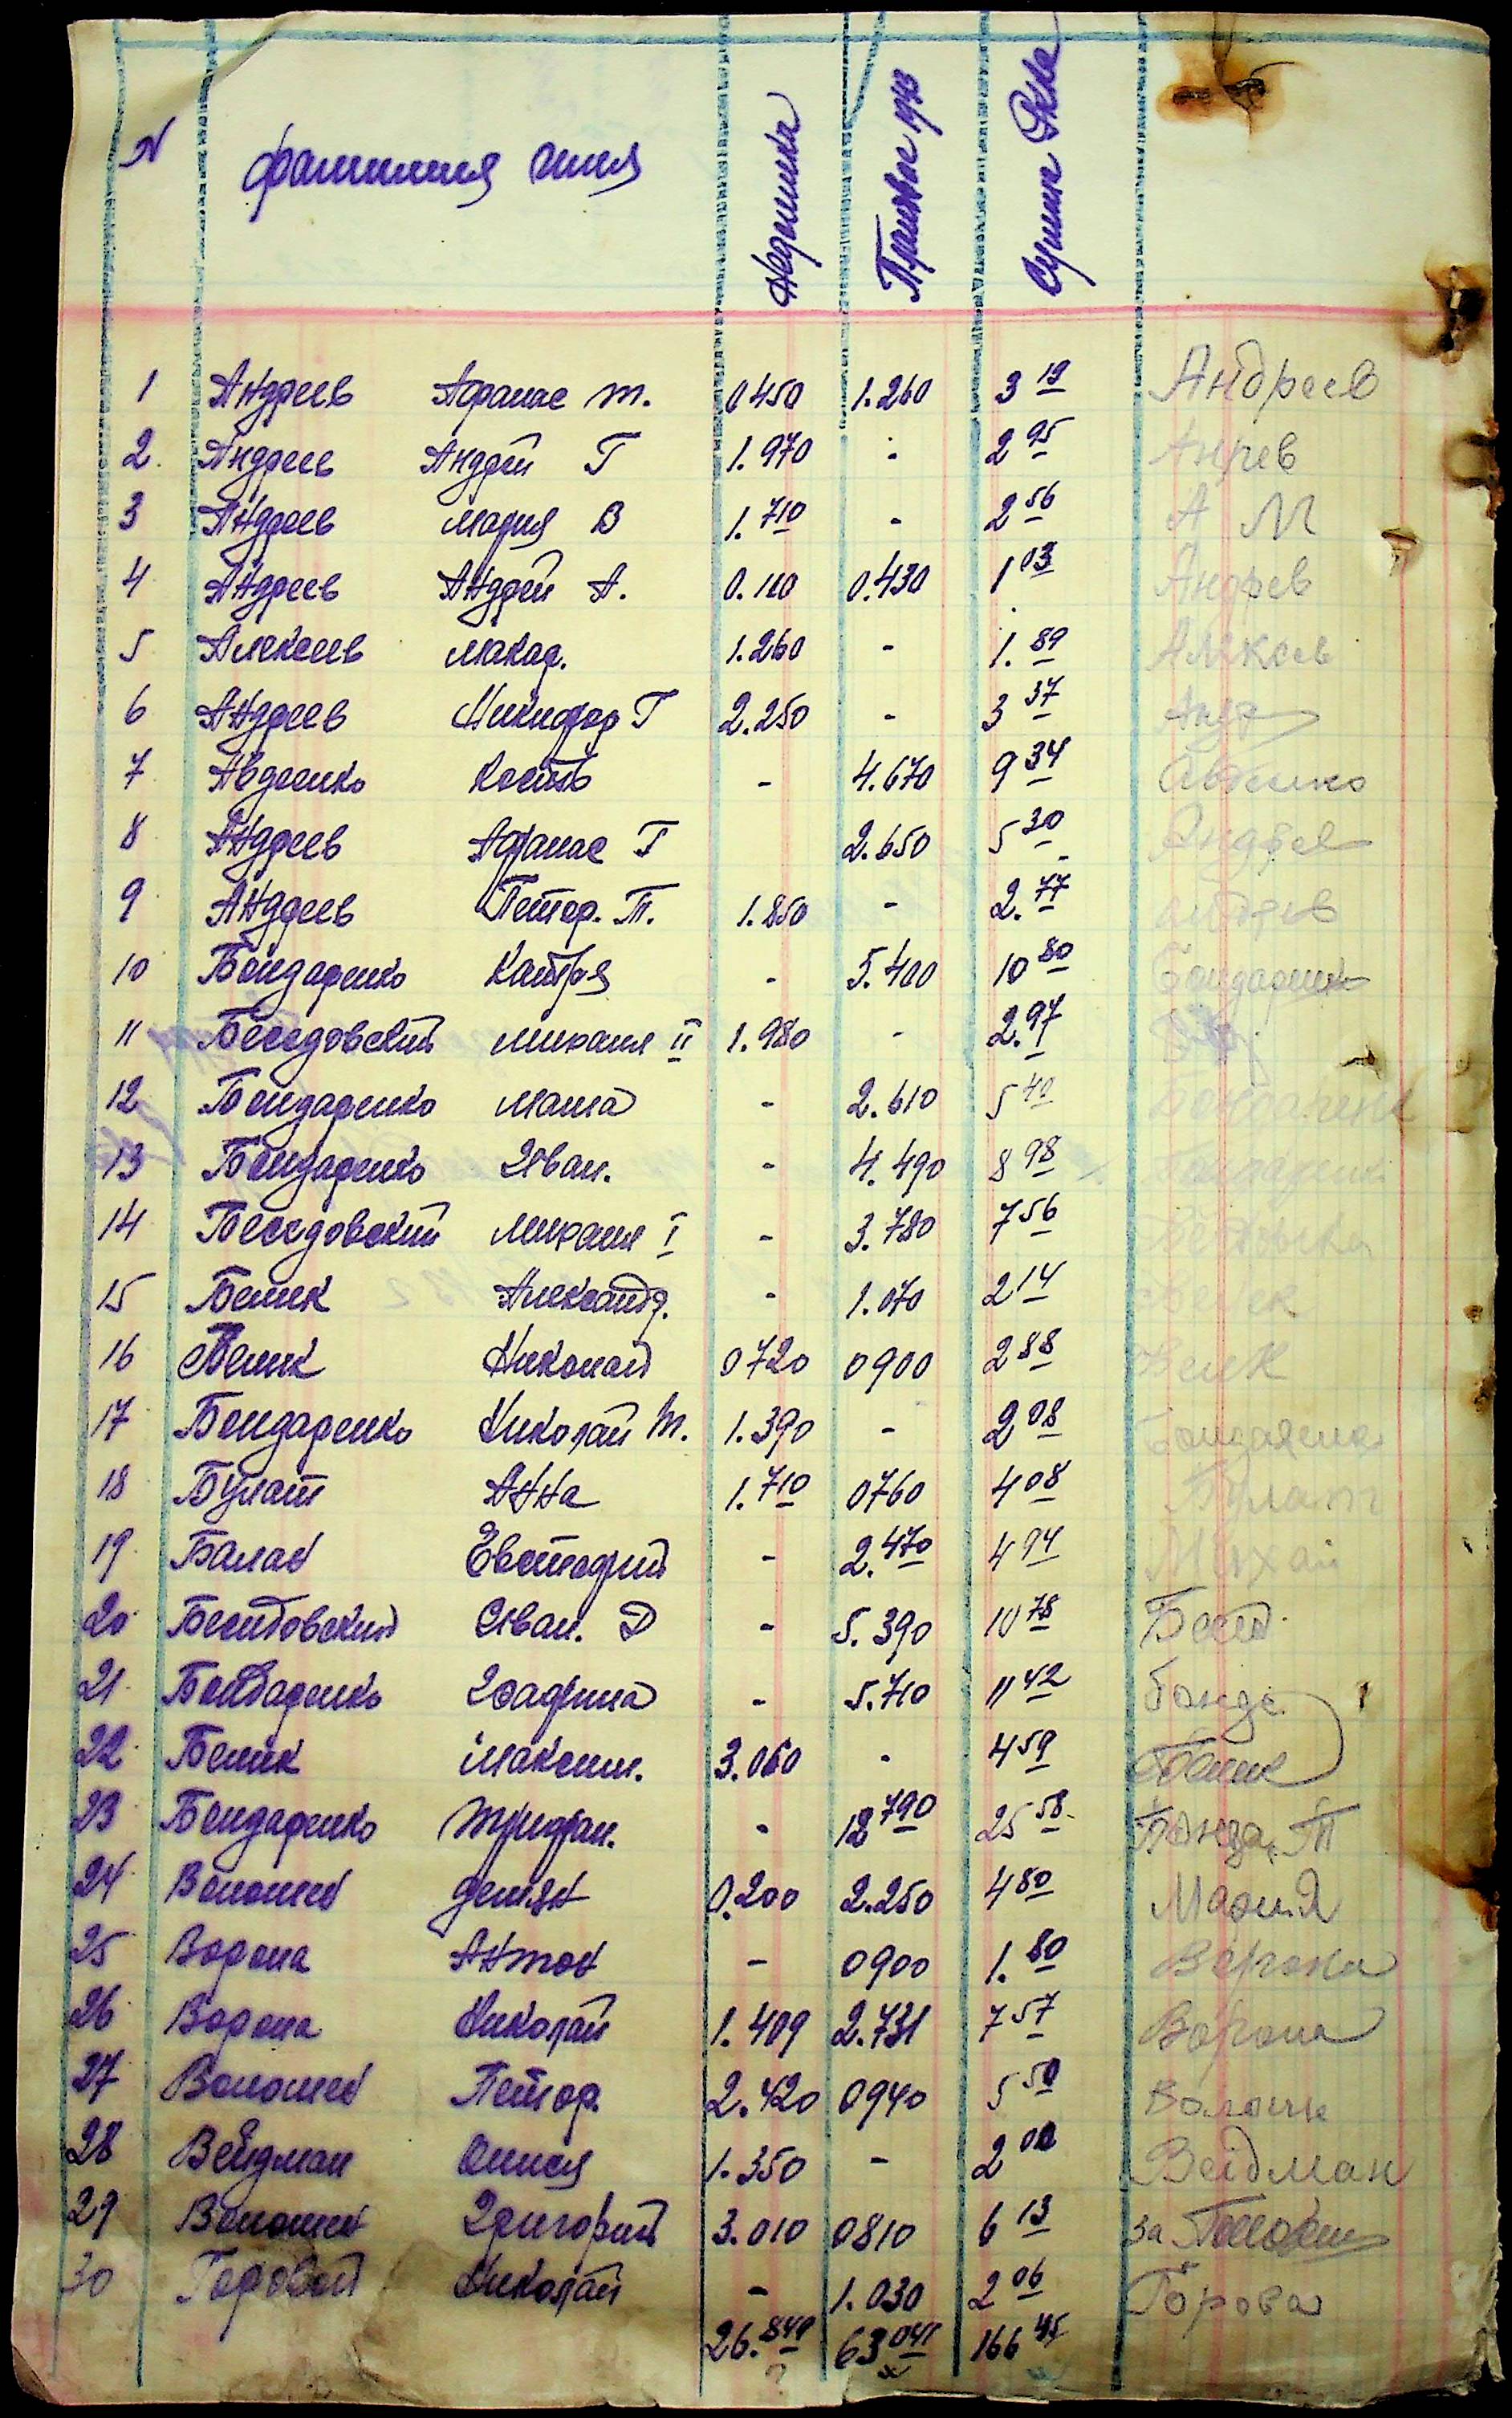 N фамилия имя Недоимка Трудовое уч Сумма
1 Андреев Афанас т. 0450 1.260 3 19 Андреев
2. Андреев Андрей Г 1.970 - 2 95 Анрев
3 Андреев Мария В 1.710 - 2 56 А М
4 Андреев Андрей А. 0.110 0.430 1 03 Андрев
5 Алексеев Макар. 1.260 - 1.89 Алексев
6 Андреев Никифор Г 2.250 - 3 37 Андр
7 Авдеенко Кость - 4.670 9 34 Авдеенко
8 Андреев Афанас Г 2.650 5 30
9 Андреев Петор. Т. 1.850 - 2.77
10 Бондаренко Катря - 5.400 10 80 Бондаренко
11 Беседовский михаил II 1.980 - 2.97
12 Бондаренко маша - 2.610 5 40
13 Бондаренко Иван. - 4.490 8 98
14 Беседовский михаил I - 3.780 7 56
15 Белик Александр. - 1.070 2 14 Белик
16 Белик Николай 0720 0900 2 88 Белик
17 Бондаренко Николай т. 1.390 - 2 08
18 Булат Анна 1.710 0760 4 08 Булат
19 Балан Евстафий - 2.470 4 94 Михай
20 Беседовский Иван. Д - 5.390 10 78 Бесед.
21. Бондаренко Графина - 5.710 11 42 Бонда.
22. Белик Максим. 3.060 - 4 59 Белик
23 Бондаренко Трифан. - 12 790 25 58 Бонда. Т
24 Волошен демян 0.200 2.250 4 80 Мария
25 Ворона Антон - 0900 1.80 Ворона
26 Ворона Николай 1.409 2.731 7 57 Ворона
27 Волошен Петор. 2.420 0940 5 50
28 Вейдман 1.350 - 2 02 Веідман
29 Волошен Григорий 3.010 0810 6 13 За
30 Горовой Николай - 1.030 2 06 Горова
26.849 63 041 166 45